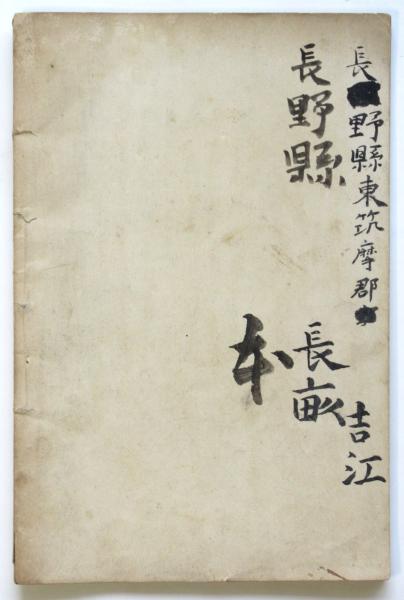 長野縣東筑摩郡
長野縣
吉江
長畝
本